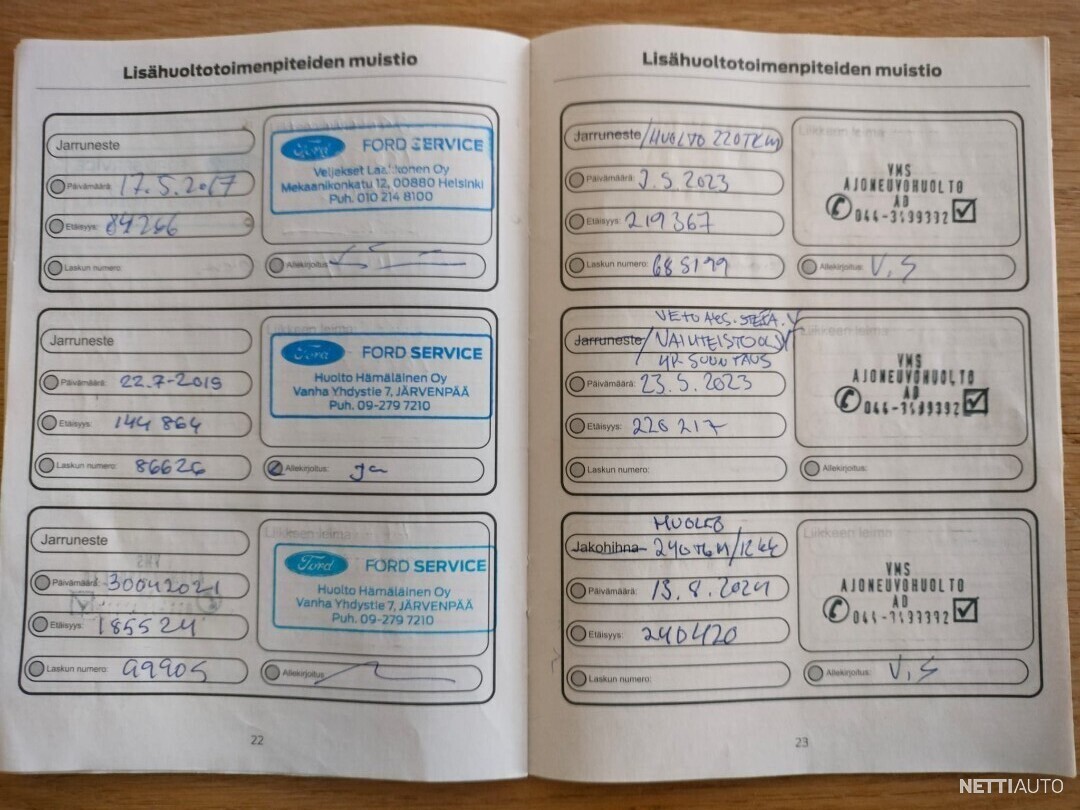 Lisähuoltotoimenpiteiden muistio
Jarruneste
Päivämäärä: 17.5.2017
Etäisyys: 84266
Laskun numero:
FORD SERVICE
Veljekset Laakkonen Oy
Mekaanikonkatu 12, 00880 Helsinki
Puh. 010 214 8100
Allekirjoitus:
Jarruneste
Päivämäärä: 22.7-2019
Etäisyys: 144 864
Laskun numero: 86626
Liikkeen leima
Ford
FORD SERVICE
Huolto Hämäläinen Oy
Vanha Yhdystie 7, JÄRVENPÄÄ
Puh. 09-279 7210
Allekirjoitus:
Jarruneste
Päivämäärä: 30042021
Etäisyys: 185524
Laskun numero: 99905
Liikkeen leima
Ford
FORD SERVICE
Huolto Hämäläinen Oy
Vanha Yhdystie 7, JÄRVENPÄÄ
Puh. 09-279 7210
Allekirjoitus:
22
Lisähuoltotoimenpiteiden muistio
Jarruneste/HUOLTO 220TKM
Päivämäärä: 2.5.2023
Etäisyys: 219367
Laskun numero: 685199
Liikkeen leima
VMS
AJONEUVOHUOLTO
AD
044-3499392
Allekirjoitus: V.S
VETOAKS. STEFA.
Jarruneste/VAIHTEISTOÖLJY
4P-SUUNTAUS
Päivämäärä: 23.5.2023
Etäisyys: 220217
Laskun numero:
Liikkeen leima
VMS
AJONEUVOHUOLTO
AD
044-3499392
Allekirjoitus:
HUOLTO
Jakohihna 240TKM/12KK
Päivämäärä: 13.8.2024
Etäisyys: 240420
Laskun numero:
Liikkeen leima
VMS
AJONEUVOHUOLTO
AD
044-3499392
Allekirjoitus: V.S
23
NETTIAUTO